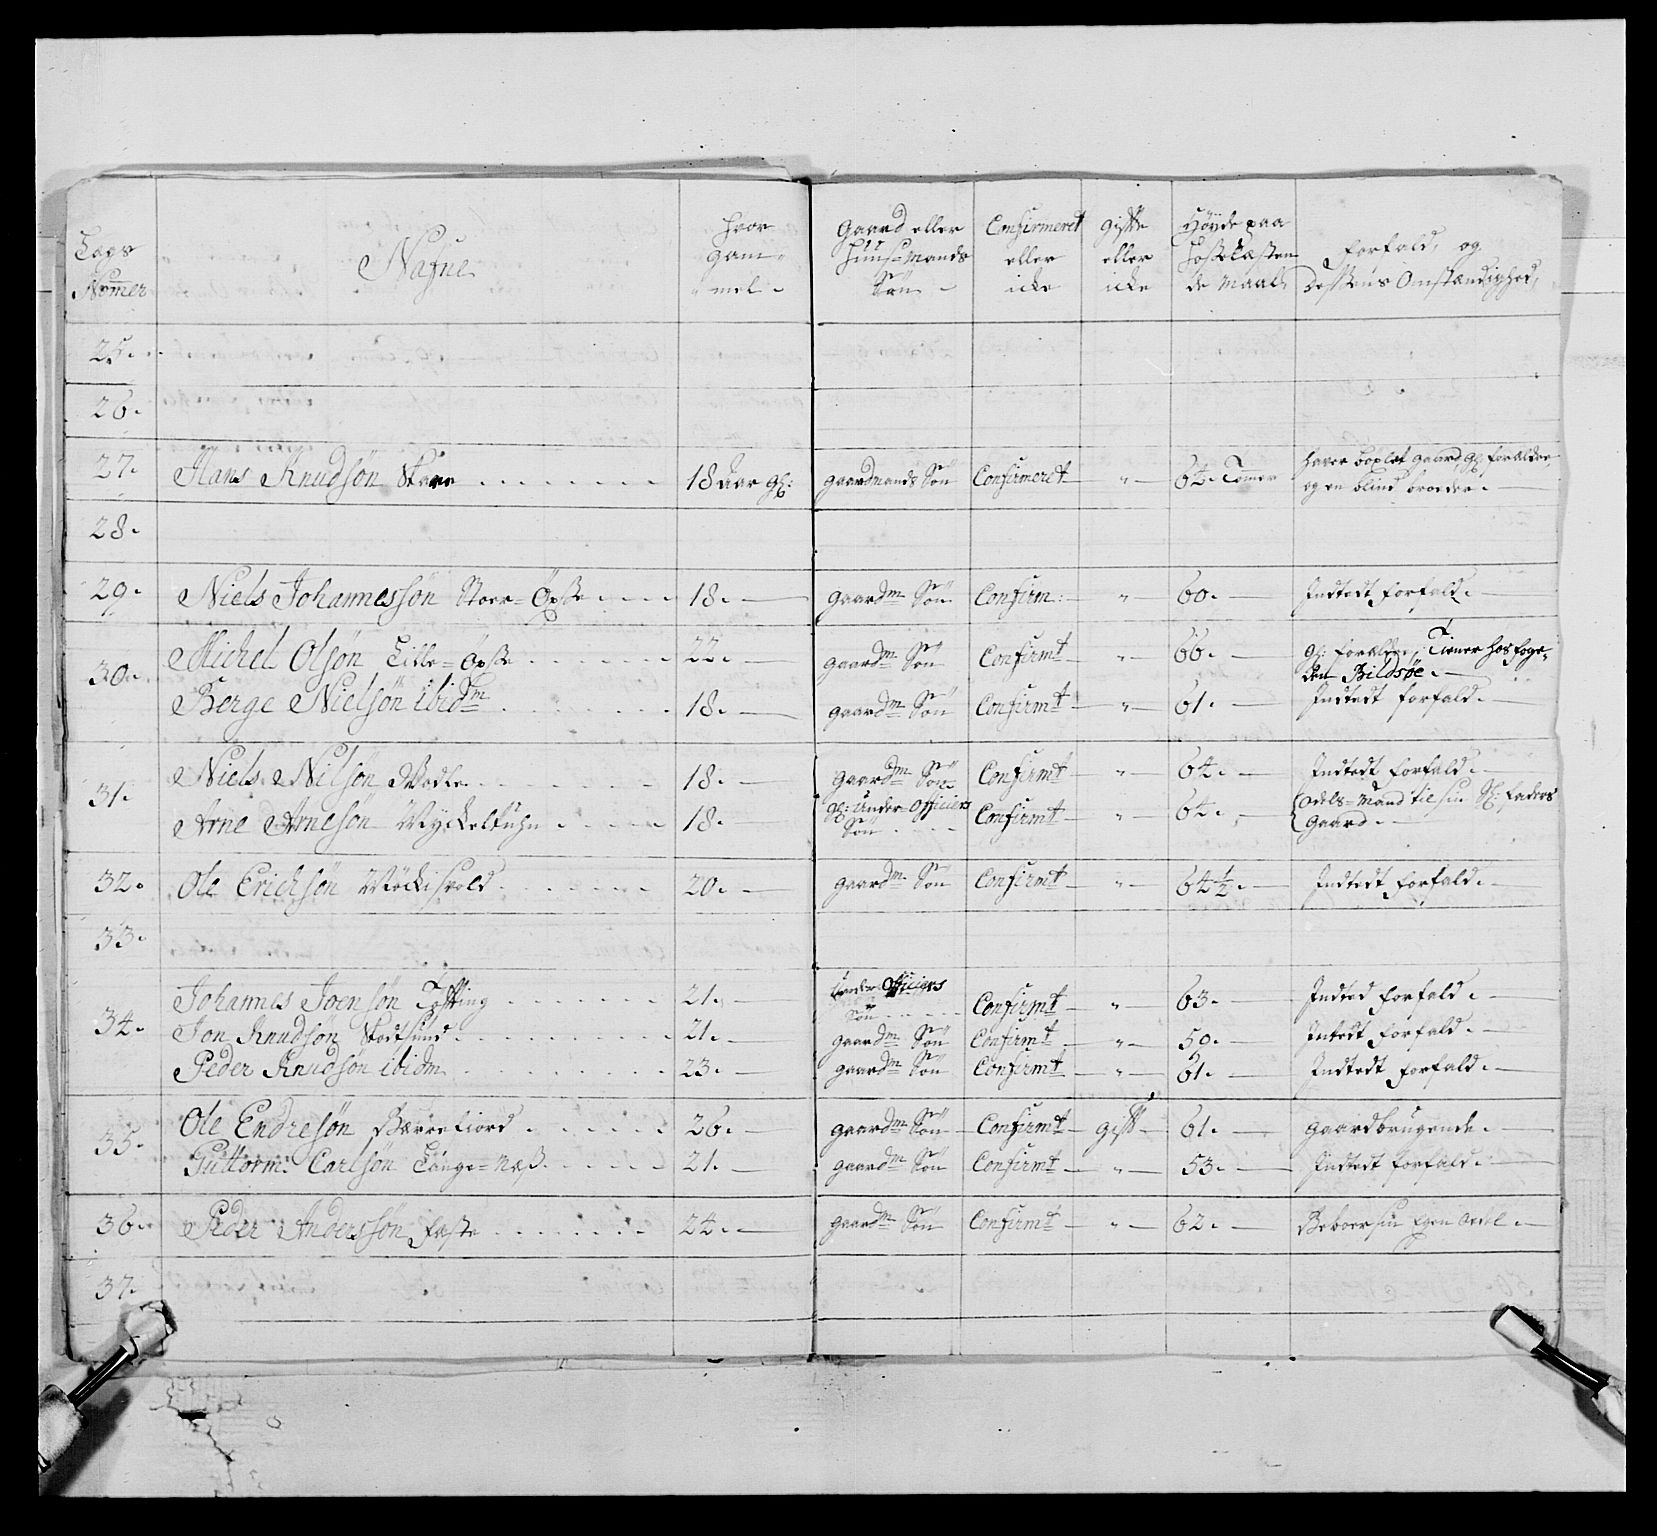 Lags Nommer | Nafne | hvor gam- mel | Gaard eller Huus-Mands Søn | Confirmeret eller icke | gift eller icke | Høyde paa Hosse læsten de Maal | Forfald, og Dessens Omstændighed
25.
26.
27. Hans Knudsøn Skare 18 aar gl: gaardmands Søn Confirmeret " 64. Tomer haver boxlet gaard, gl: forældre, og en blind broeder.
28.
29. Niels Johannessøn Stoer-Øxste 18. gaardm Søn Confirm: " 60. Indtedt forfald.
30. Michel Olsøn Lille-Øxste 22. gaardm Søn Confirmt " 66. gl: forældre, Tiener hos foge-
den Bildsøe.
Berge Nielsøn ibidm 18. gaardm Søn Confirmt " 61. Indtedt forfald.
31. Niels Nilsøn 18. gaardm Søn Confirmt " 64. Indtedt forfald.
Arne Arnesøn Myckeltuhn 18. gl: Under-Officiers Søn Confirmt " 64. Odels-Mand til sin Sl: faders Gaard.
32. Ole Erichsøn Møckisvold 20. gaardm Søn Confirmt " 64½. Indtedt forfald.
33.
34. Johannes Joensøn Tøfting 21. Under Officiers Søn Confirmt " 63. Indted forfald.
Jon Knudsøn Skodtsund 21. gaardm Søn Confirmt " 59. Intedt forfald.
Peder Knudsøn ibidm 23. gaardm Søn Confirmt " 61. Indtedt forfald.
35. Ole Endresøn Bærrefiord 26. gaardm Søn Confirmt gift 61. gaardbrugende.
Guttorm Carlsøn Lange-Næss 21. gaardm Søn Confirmt " 53. Indtedt forfald.
36. Peder Anderssøn Faste 24. gaardm Søn Confirmt " 62. Beboer sin Egen Oedel.
37.